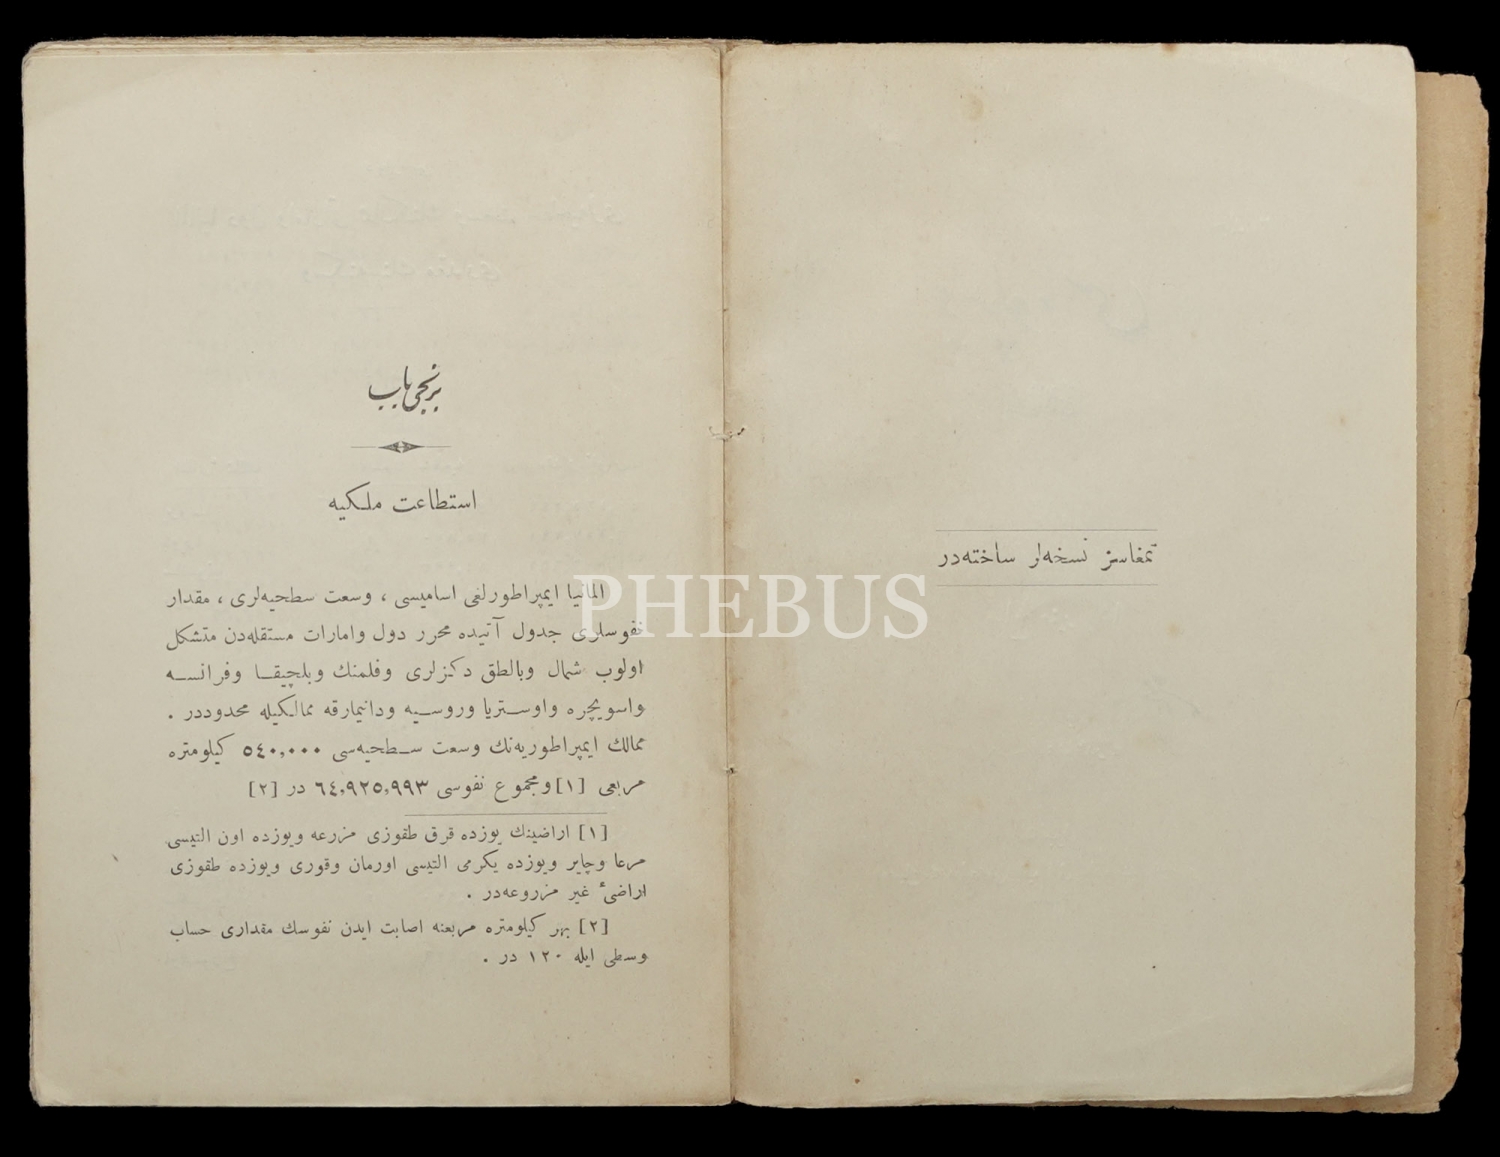 تمغاسز نسخه‌لر ساخته‌در
برنجی باب
استطاعت ملكیه
المانیا ایمپراطورلغی اسامیسی ، وسعت سطحیه‌لری ، مقدار
نفوسلری جدول آتیده محرر دول وامارات مستقله‌دن متشكل
اولوب شمال وبالطق دكزلری وفلمنك وبلچیقا وفرانسه
واسویچره واوستریا وروسیه ودانیمارقه ممالكیله محدوددر .
ممالك ایمپراطوریه‌نك وسعت سطحیه‌سی ٥٤٠,٠٠٠ كیلومتره
مربعی [١] ومجموع نفوسی ٦٤,٩٢٥,٩٩٣ در [٢]
[١] اراضینك یوزده قرق طقوزی مزرعه ویوزده اون التیسی
مرعا وچایر ویوزده یكرمی التیسی اورمان وقوری ویوزده طقوزی
اراضیٔ غیر مزروعه‌در .
[٢] بهر كیلومتره مربعنه اصابت ایدن نفوسك مقداری حساب
وسطی ایله ١٢٠ در .
PHEBUS